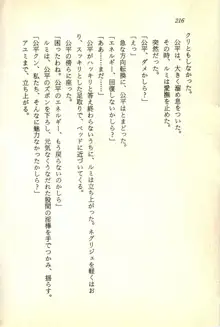 216
クリともしなかった。
公平は、大きく溜め息をついた。
突然だった。ルミは愛撫を止めた。
「公平、ダメかしら?」
「えっ」
「エネルギー、回復しないかしら?」
急な方向転換に、公平はとまどった。
公平がハッキリと答えないうちに、ルミは立ち上がった。ネグリジェを軽くはお
り、スッキリとした足取りで、ベッドに近づいてくる。
公平の傍らに座った。
「困ったわね。公平のエネルギー、もう戻らないのかしら」
ルミは公平のズボンを下し、元気なくうなだれた股間の淫棒を手でつかみ、揺らす。
「公平クン、私たち、そんなに魅力なかったかしら?」
アユミまで、立ち上がる。